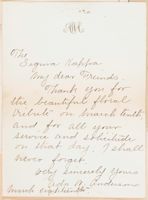 The
Sequia Kappa
My dear Friends.
Thank you for
the beautiful floral
tribute on March tenth,
and for all your
service and solicitude
on that day, I shall
never forget
Very sincerely yours
Leda N. Anderson
March eighteenth